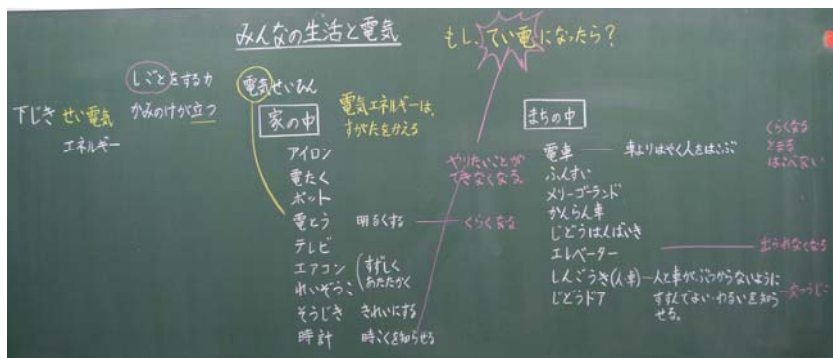 みんなの生活と電気
もし、てい電になったら?
しごとをする力
下じき せい電気 かみのけが立つ
エネルギー
電気せいひん
家の中
電気エネルギーは、
すがたをかえる
アイロン
電たく
ポット
電とう 明るくする くらくなる
テレビ
エアコン すずしく
れいぞうこ あたたかく
そうじき きれいにする
時計 時こくを知らせる
やりたいことが
できなくなる。
まちの中
電車 車よりはやく人をはこぶ
くらくなる
とまる
はこべない
ふんすい
メリーゴーランド
かんらん車
じどうはんばいき
エレベーター 出られなくなる
しんごうき(人、車) 人と車が、ぶつからないように
じどうドア すすんでよい・わるいを知ら
せる。
交つうじこ